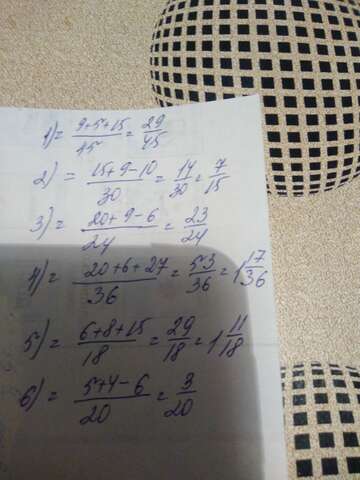 1) = 9+5+15/45 = 29/45
2) = 15+9-10/30 = 14/30 = 7/15
3) = 20+9-6/24 = 23/24
4) = 20+6+27/36 = 53/36 = 1 17/36
5) = 6+8+15/18 = 29/18 = 1 11/18
6) = 5+4-6/20 = 3/20